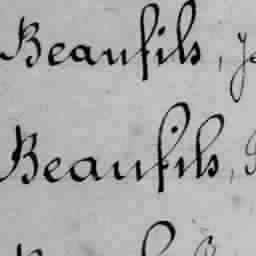 Beaufils,
Beaufils,